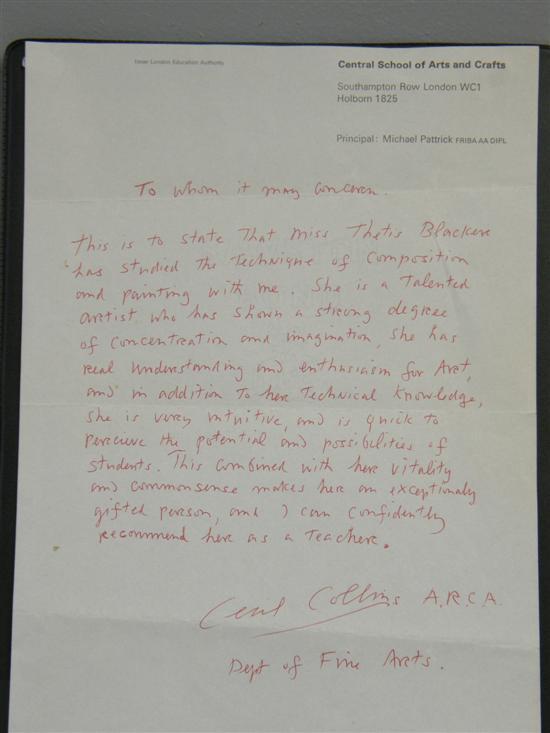 Inner London Education Authority
Central School of Arts and Crafts
Southampton Row London WC1
Holborn 1825
Principal: Michael Pattrick FRIBA AA DIPL
To whom it may concern.
This is to state that Miss Thetis Blacker
has studied the Technique of Composition
and painting with me. She is a Talented
artist who has shown a strong degree
of concentration and imagination, she has
real understanding and enthusiasm for Art,
and in addition to her Technical Knowledge,
she is very intuitive, and is quick to
percieve the potential and possibilities of
students. This combined with her vitality
and commonsense makes her an exceptionally
gifted person, and I can confidently
recommend her as a Teacher.
Cecil Collins A.R.C.A.
Dept of Fine Arts.